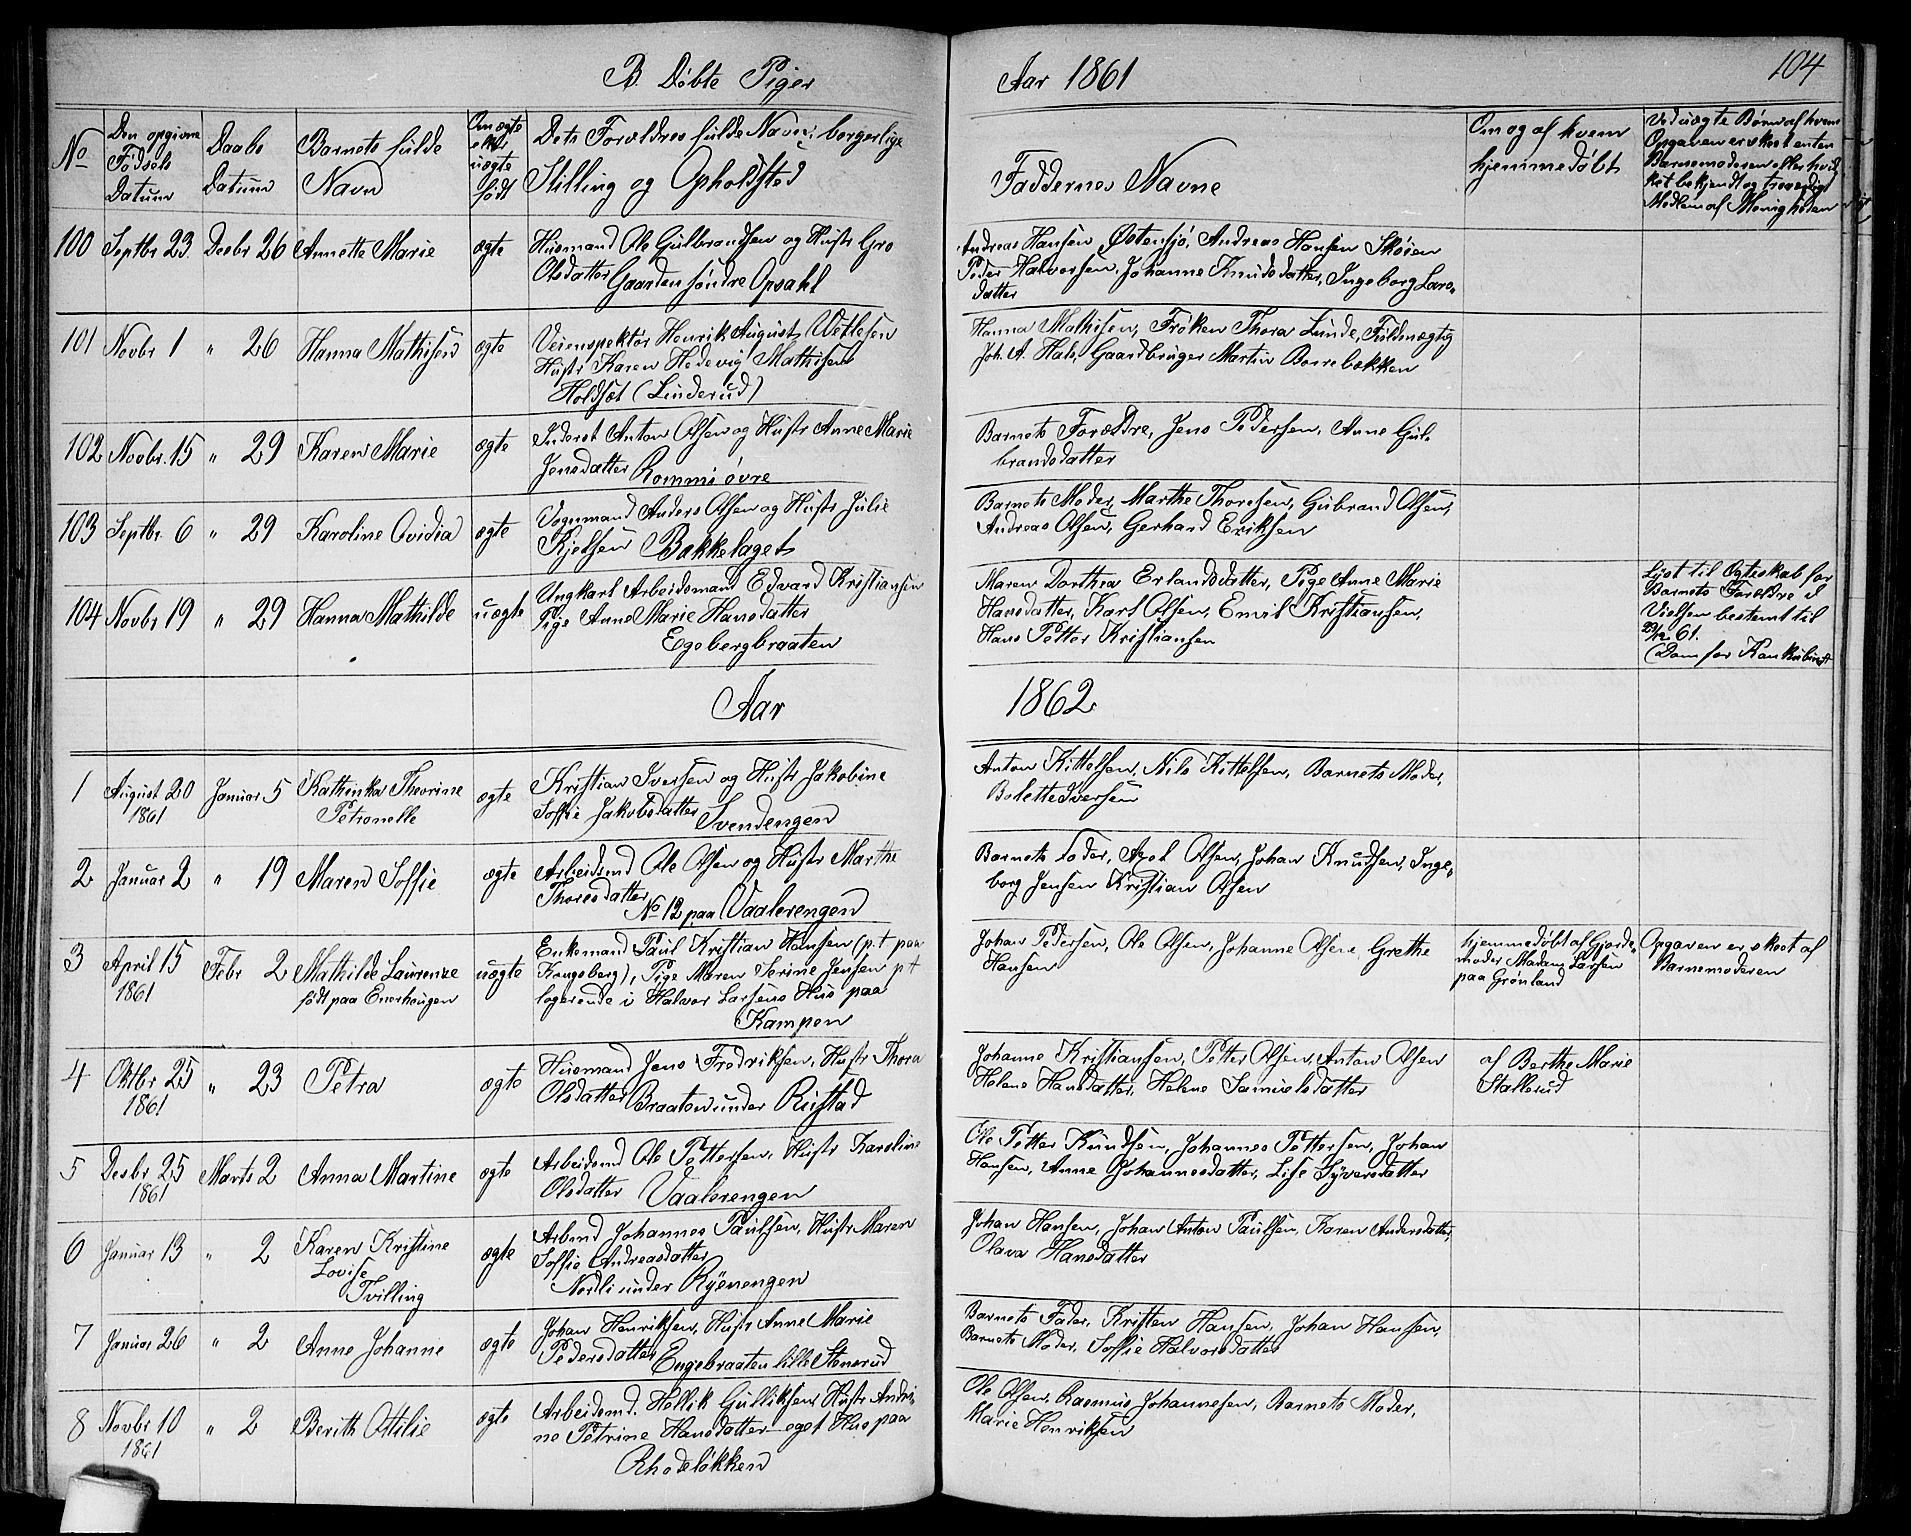 B. Døbte Piger
Aar 1861
104
No
Den opgivne Fødsels Datum
Daabs Datum
Barnets fulde Navn
Om ægte eller uægte født
Dets Forældres fulde Navn, borgerlige Stilling og Opholdsted
Faddernes Navne
Om og af hvem hjemmedøbt
Ved uægte Børn af hvem Opgaven er skeet enten Barnemoderen eller hvilket bekjendt og troværdigt Medlem af Menigheden
100 Septbr 23 Decbr 26 Annette Marie ægte
Husmand Ole Gulbrandsen og Hustr Gro
Olsdatter Gaarden søndre Opsahl
Andreas Hansen Østensjø, Andreas Hansen Skøien
Peder Halvorsen, Johanne Knudsdatter, Ingeborg Lars-
datter
101 Novbr 1 " 26 Hanna Mathisen ægte
Veiinspektør Henrik August Wetlesen
Hustr Karen Hedevig Mathisen
Holdsæt (Linderud)
Hanna Mathisen, Frøken Thora Lunde, Fuldmægtig
Joh. A. Hals, Gaardbruger Martin Borrebækken
102 Novbr. 15 " 29 Karen Marie ægte
Inderst Anton Olsen og Hustr Anne Marie
Jensdatter Rommi øvre
Barnets Forældre, Jens Pedersen, Anne Gul-
brandsdatter
103 Septbr. 6 " 29 Karoline Ovidia ægte
Vognmand Anders Olsen og Hustr Julie
Kjelsen Bækkelaget
Barnets Moder, Marthe Thoresen, Gubrand Olsen,
Andreas Olsen, Gerhard Eriksen
104 Novbr 19 " 29 Hanna Mathilde uægte
Ungkarl Arbeidsmand Edvard Kristiansen
Pige Anne Marie Hansdatter
Egebergbraaten
Maren Dorthea Erlandsdatter, Pige Anne Marie
Hansdatter, Karl Olsen, Emil Kristiansen,
Hans Petter Kristiansen
Lyst til Ægteskab for
Barnets Forældre
Vielsen bestemt til
61.
Aar
1862
1 August 20 Januar 5 Kathinka Theorine ægte
1861 Petronelle
Kristian Iversen og Hustr Jakobine
Soffie Jakobsdatter Svendengen
Anton Kittelsen, Nils Kittelsen, Barnets Moder,
Bolette Iversen
2 Januar 2 " 19 Maren Soffie ægte
Arbeidsmd Ole Olsen og Hustr Marthe
Thoresdatter No 12 paa Vaalerengen
Barnets Fader, Axel Olsen, Johan Knudsen, Inge-
borg Jensen Kristian Olsen
3 April 15 Febr 2 Mathilde Laurenze uægte
1861 født paa Enerhaugen
Enkemand Paul Kristian Hansen (p.t paa
Kongsberg), Pige Maren Serine Jensen pt
logerende i Halvor Larsens Hus paa
Kampen
Johan Pedersen, Ole Olsen, Johanne Olsen, Grethe
Hansen
hjemmedøbt af Gjorde-
moder Madam Larsen
paa Grønland
Opgaven er skeet af
Barnemoderen
4 Oktbr 25 " 23 Petra ægte
1861
Husmand Jens Fredriksen, Hustr Thora
Olsdatter Braaten under Rustad
Johanne Kristiansen, Petter Olsen, Anton Olsen
Helene Hansdatter, Helene Samuelsdatter
af Berthe Marie
Stallerud
5 Decbr 25 Marts 2 Anna Martine ægte
1861
Arbeidsmd Ole Pettersen, Hustr Karoline
Olsdatter Vaalerengen
Ole Petter Knudsen, Johannes Pettersen, Johan
Hansen, Anne Johannesdatter, Lise Syversdatter
6 Januar 13 " 2 Karen Kristine ægte
Lovise
Tvilling
Arbmd Johannes Paulsen, Hustr Maren
Soffie Andreasdatter
Nordli under Ryenengen
Johan Hansen, Johan Anton Paulsen, Karen Andersdatter,
Olava Hansdatter
7 Januar 26 " 2 Anne Johanne ægte
Johan Henriksen, Hustr Anne Marie
Pedersdatter Engebraaten lille Stenerud
Barnets Fader, Kristen Hansen, Johan Hansen,
Barnets Moder, Soffie Halvorsdatter
8 Novbr 10 " 2 Berith Ottilie ægte
1861
Arbeidsmd. Hellik Gulliksen Hustr Andri-
ne Petrine Hansdatter eget Hus paa
Rhodeløkken
Ole Olsen, Rasmus Johannesen, Barnets Moder,
Marie Henriksen